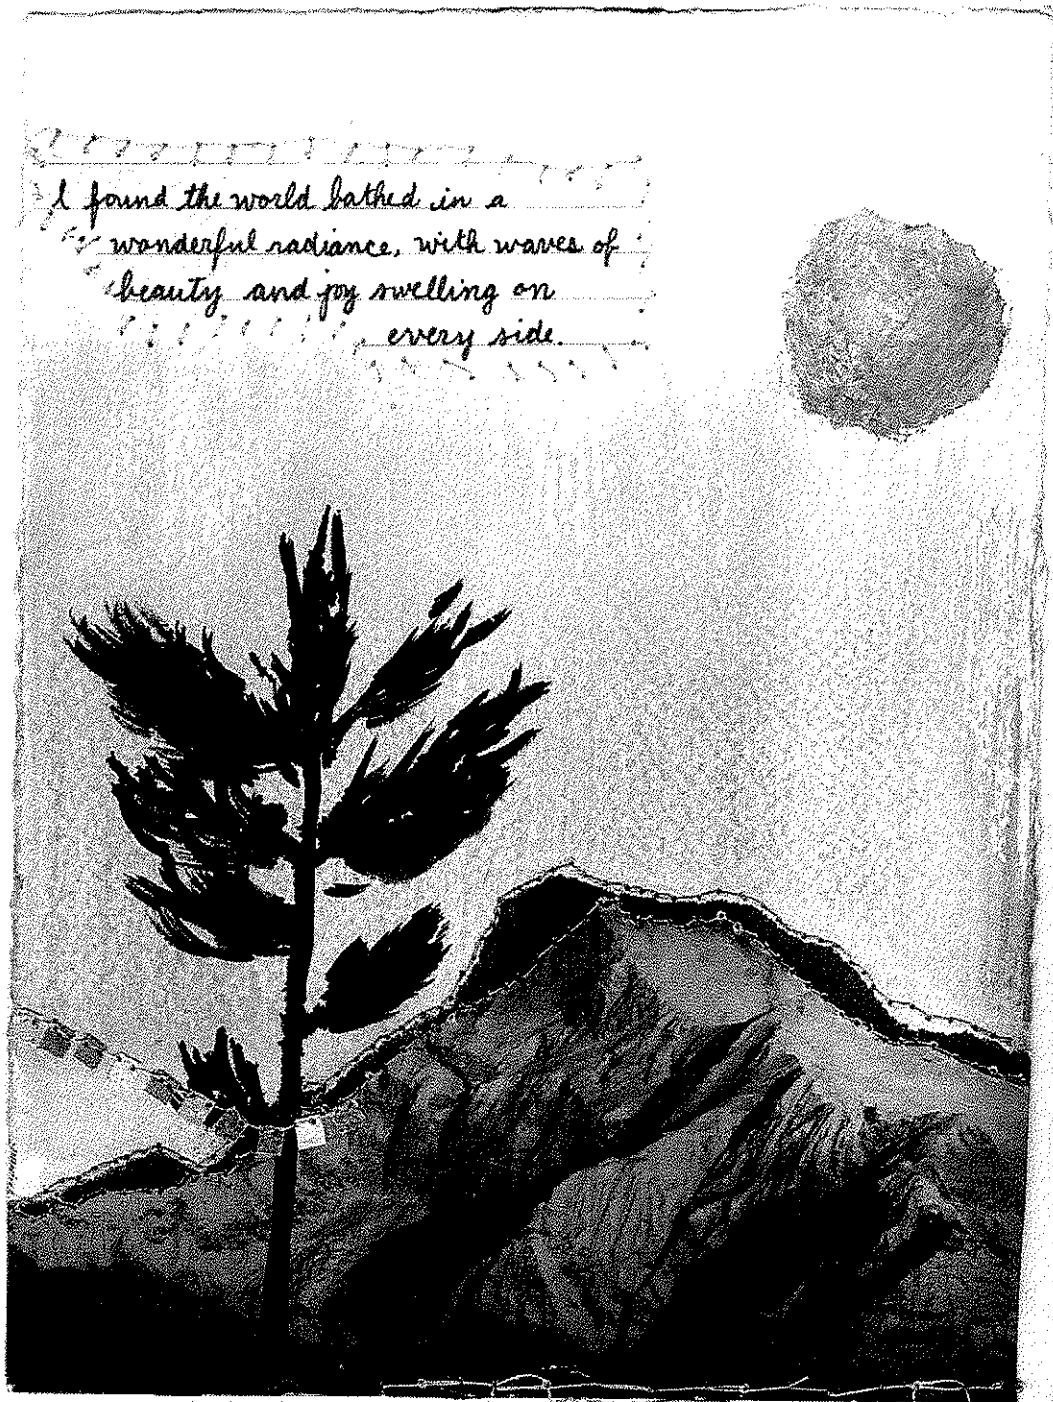 I found the world bathed in a
wonderful radiance, with waves of
beauty and joy swelling on
every side.